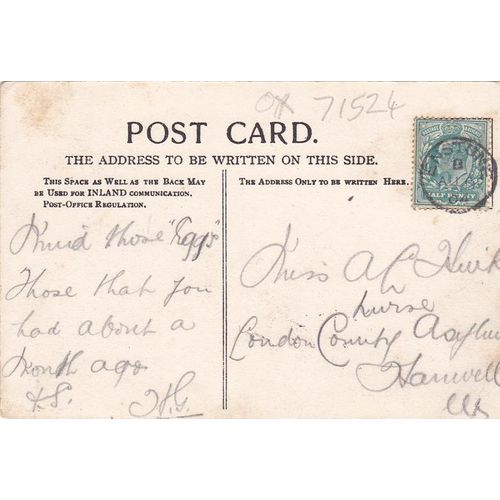 OX 71524
POST CARD.
THE ADDRESS TO BE WRITTEN ON THIS SIDE.
THIS SPACE AS WELL AS THE BACK MAY
BE USED FOR INLAND COMMUNICATION.
POST-OFFICE REGULATION.
THE ADDRESS ONLY TO BE WRITTEN HERE.
POSTAGE REVENUE
HALF PENNY
ENSTONE
those "Eggs"
Those that you
had about a
Month ago
H.G.
Miss A
Nurse
London County Asylum
Hanwell